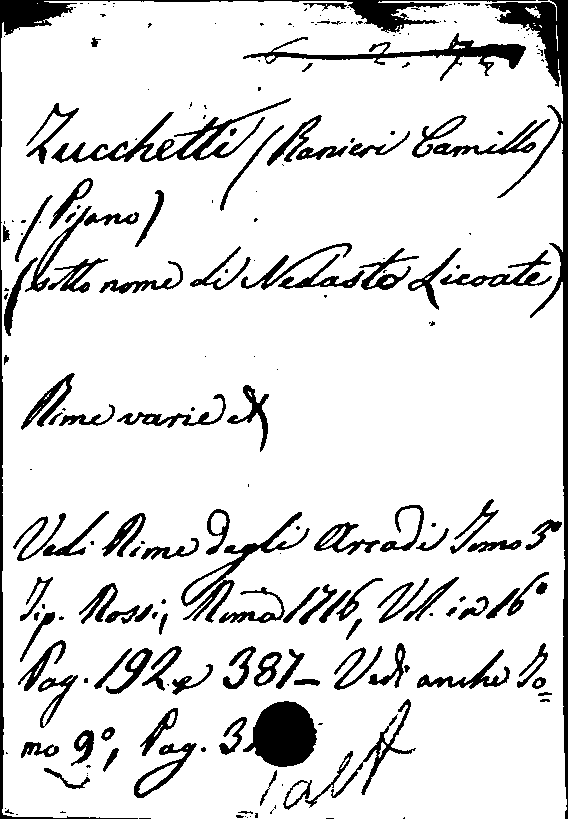 6. 2. 7
Zucchetti (Ranieri Camillo)
(Pisano)
(sotto nome di Nedasto Licoate)
Rime varie
Vedi Rime degli Arcadi Tomo 3º
Tip. Rossi, Roma 1716, Vol. in 16º
Pag. 192 e 387 – Vedi anche To=
mo 9º, Pag. 3